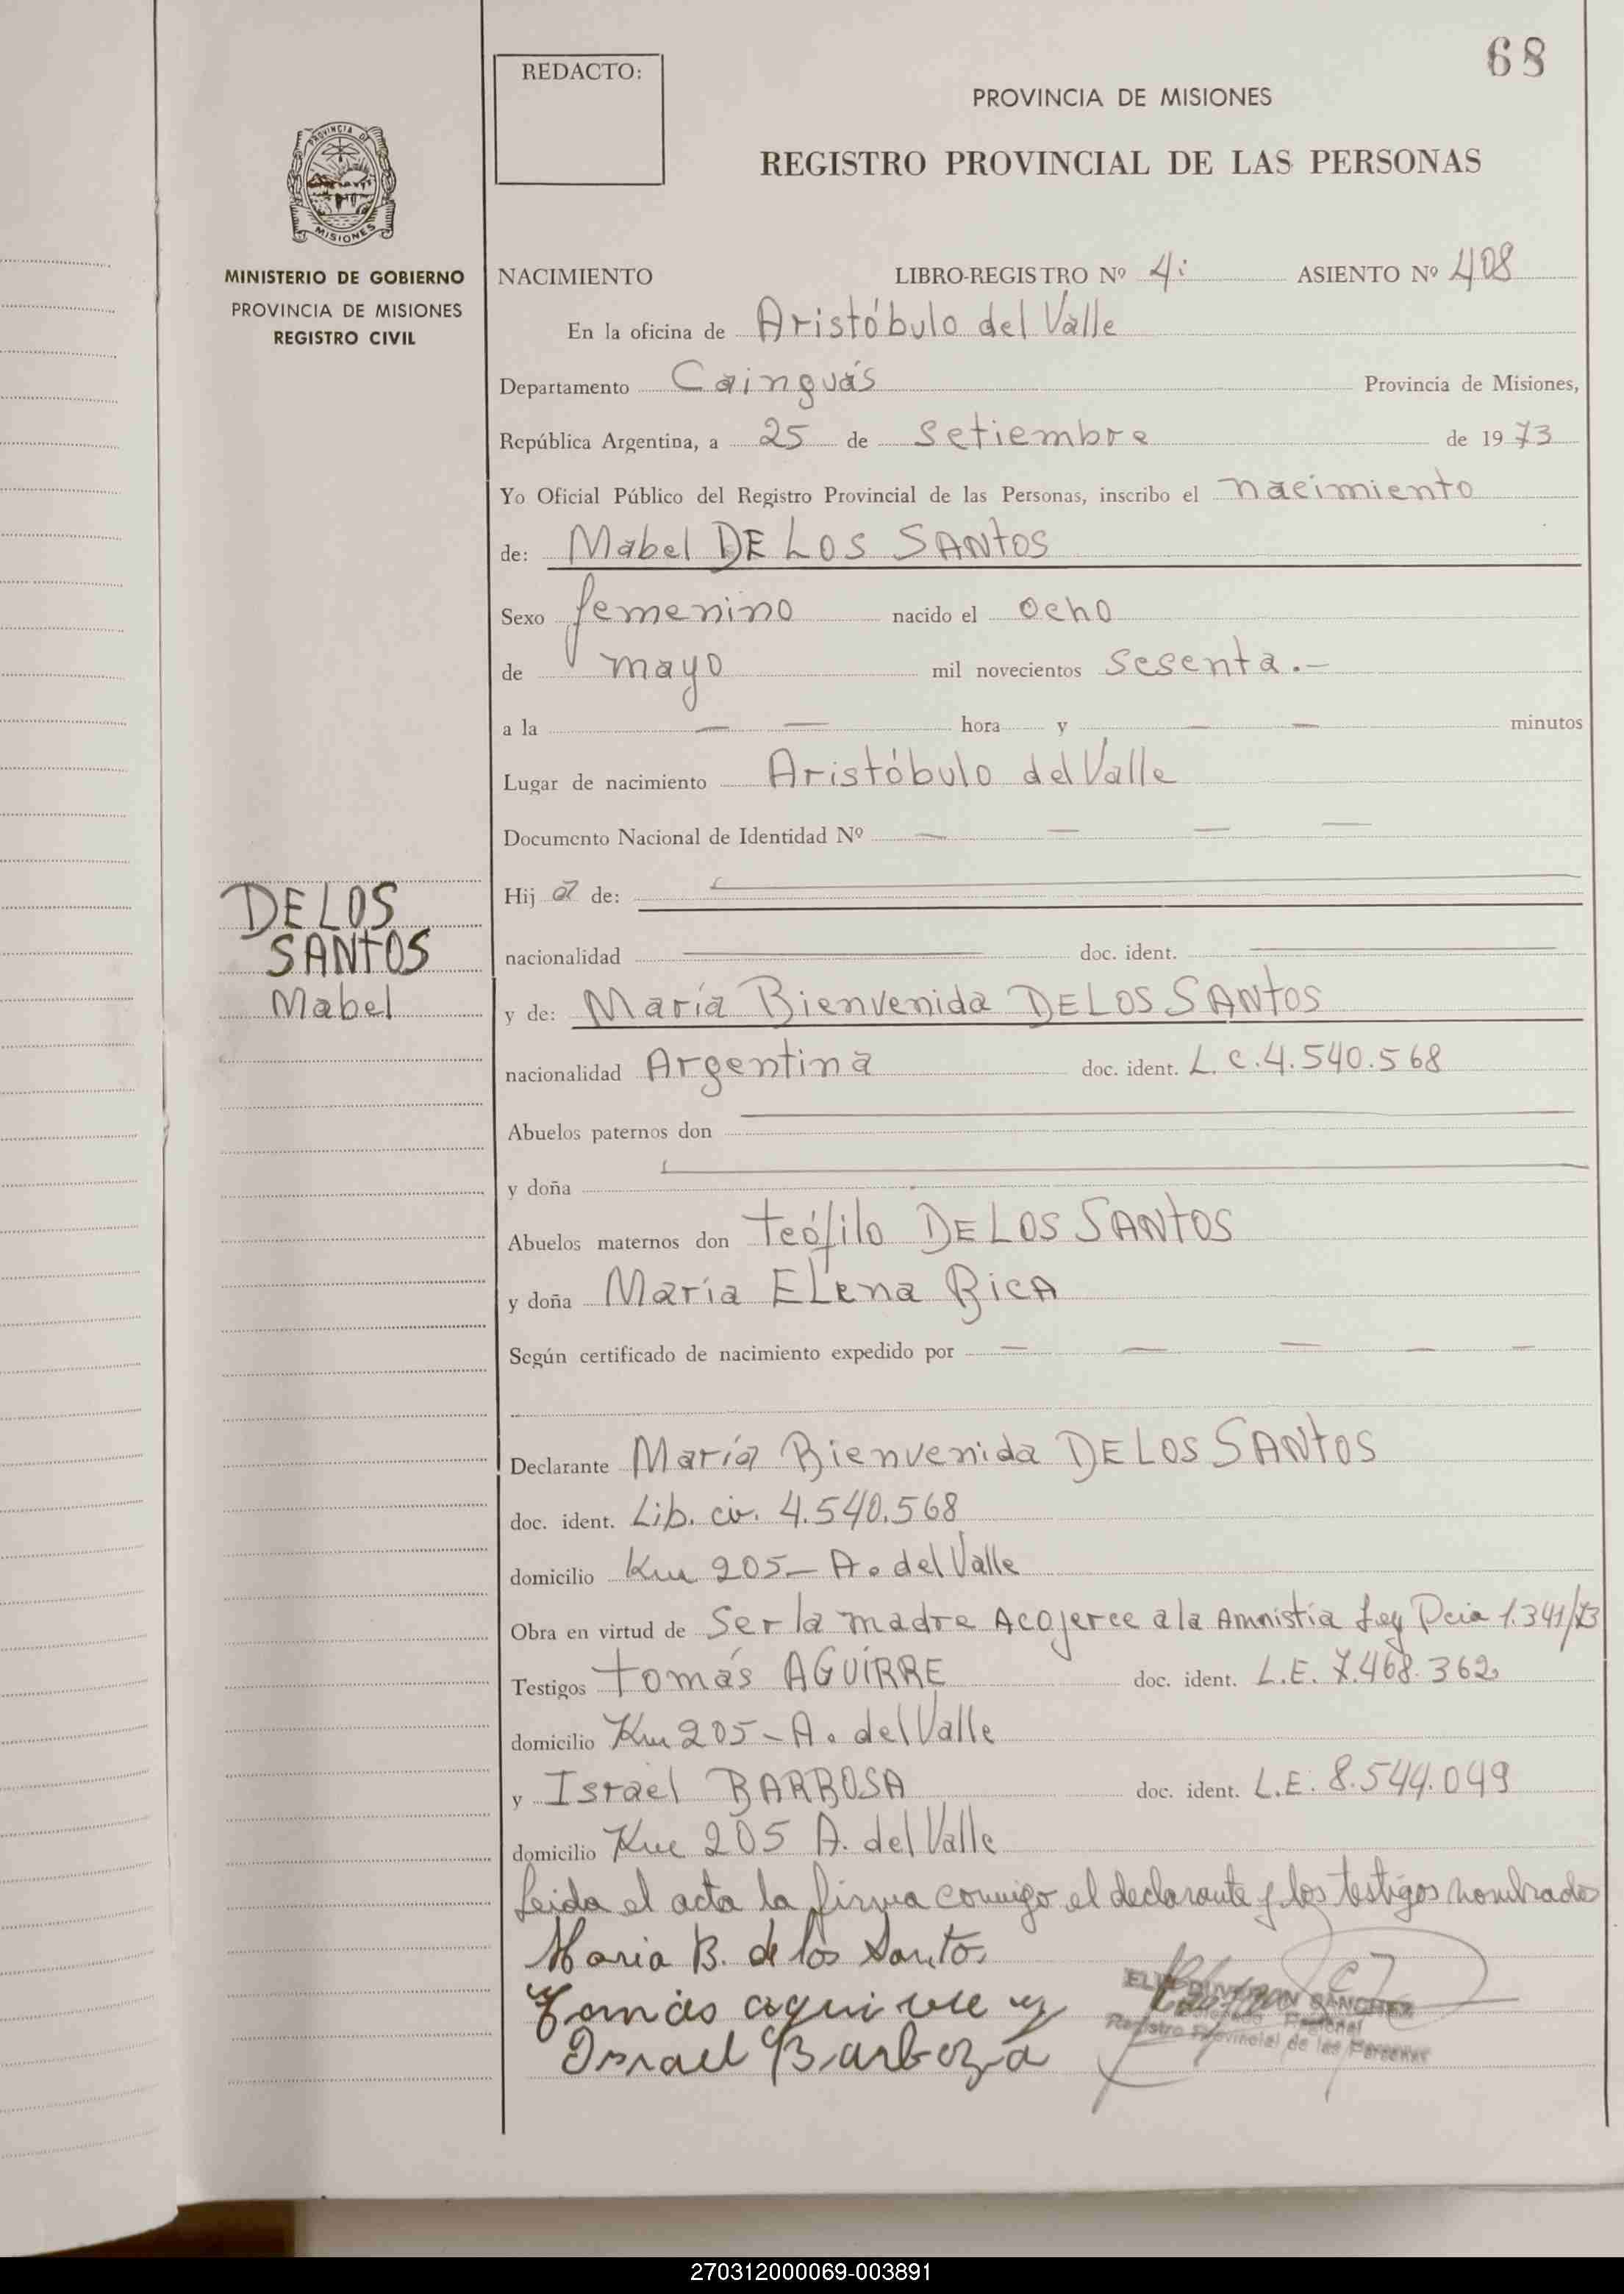 68
REDACTO:
PROVINCIA DE MISIONES
REGISTRO PROVINCIAL DE LAS PERSONAS
PROVINCIA DE
MISIONES
MINISTERIO DE GOBIERNO
PROVINCIA DE MISIONES
REGISTRO CIVIL
NACIMIENTO LIBRO-REGISTRO Nº 4i ASIENTO Nº 408
En la oficina de Aristóbulo del Valle
Departamento Cainguás Provincia de Misiones,
República Argentina, a 25 de Setiembre de 1973
Yo Oficial Público del Registro Provincial de las Personas, inscribo el nacimiento
de: Mabel DE LOS SANTOS
Sexo femenino nacido el ocho
de mayo mil novecientos sesenta.-
a la — — hora y — — minutos
Lugar de nacimiento Aristóbulo del Valle
Documento Nacional de Identidad Nº — — — —
DE LOS
SANTOS
Mabel
Hij a de:
nacionalidad doc. ident.
y de: María Bienvenida DE LOS SANTOS
nacionalidad Argentina doc. ident. L. C. 4.540.568
Abuelos paternos don
y doña
Abuelos maternos don Teófilo DE LOS SANTOS
y doña María ELena BicA
Según certificado de nacimiento expedido por — — — — —
Declarante María Bienvenida DE LOS SANTOS
doc. ident. Lib. civ. 4.540.568
domicilio Km 205 — A. del Valle
Obra en virtud de Ser la madre Acojerce a la Amnistía Ley Pcia 1.341/73
Testigos Tomás AGUIRRE doc. ident. L.E. 7.468.362
domicilio Km 205 - A. del Valle
y Israel BARBOSA doc. ident. L.E. 8.544.049
domicilio Km 205 A. del Valle
Leida el acta la firma conmigo el declarante y los testigos nombrados
Maria B. de los Santo.
Tomás aguirre y
Israel Barboza
SANCHEZ
Delegado Regional
Registro Provincial de las Personas
270312000069-003891